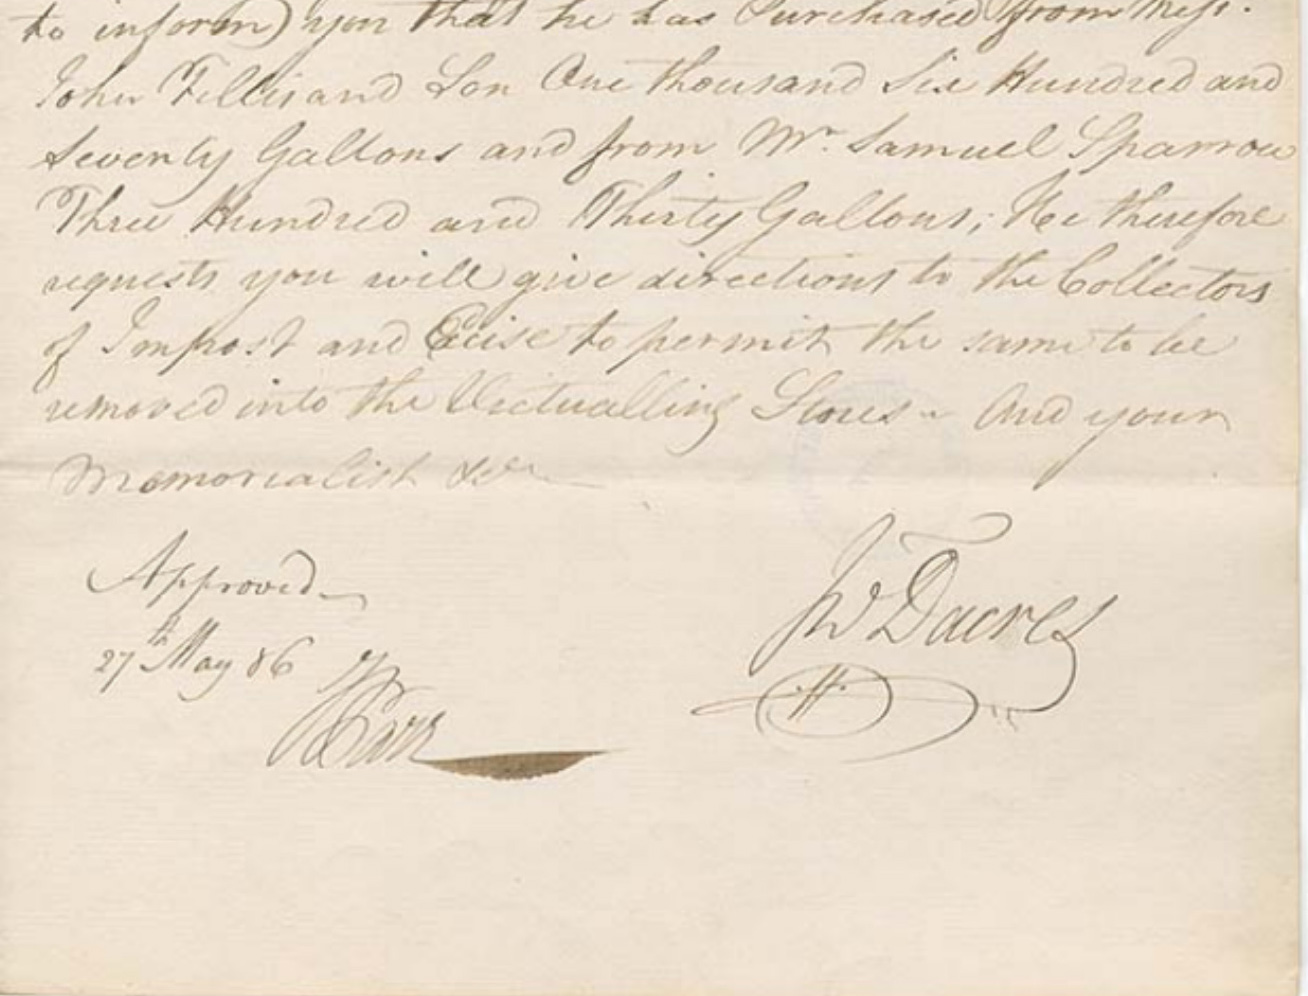 to inform) you that he has Purchased from Mess.rs
John Fillis and Son One thousand Six Hundred and
Seventy Gallons and from Mr. Samuel Sparrow
Three Hundred and Thirty Gallons; He therefore
requests you will give directions to the Collectors
of Impost and Excise to permit the same to be
removed into the Victualling Stores – And your
Memorialist &c
Approved
27th May 86
Jas Dacres
Parr